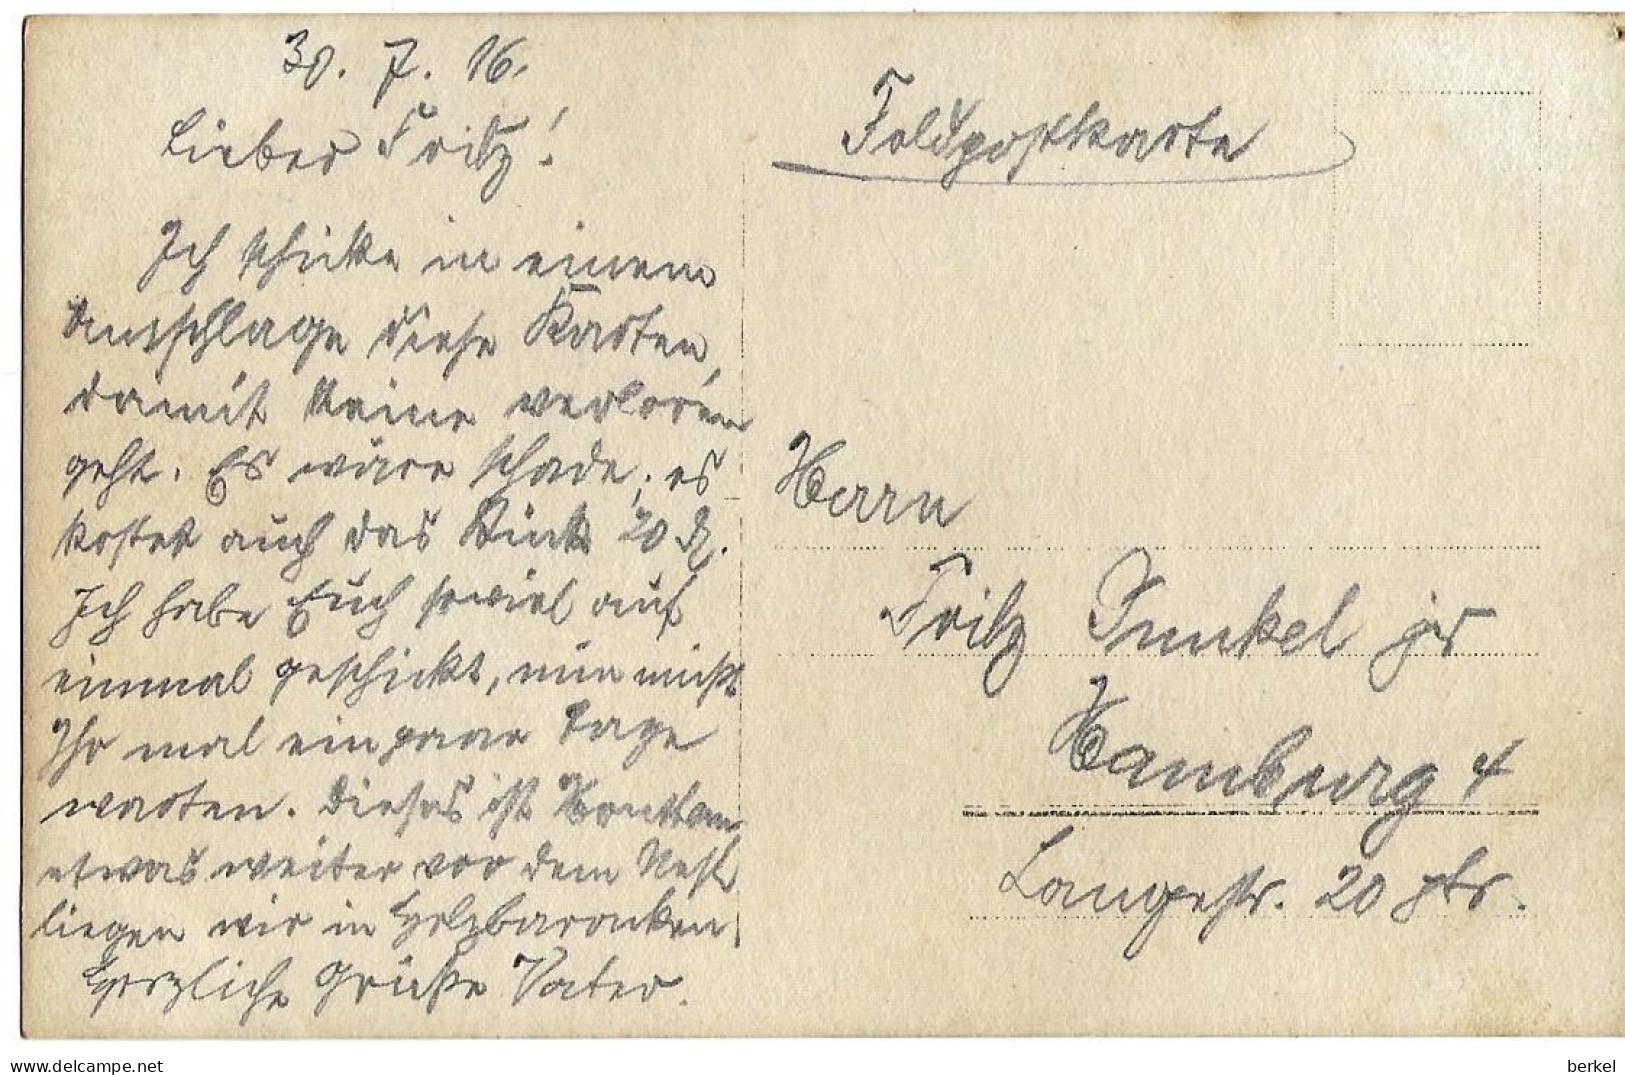 30. 7. 16.
Lieber Fritz!
Ich schicke in einem
Umschlage diese Karten,
damit keine verloren
geht. Es wäre schade, es
kostet auch das Stück 20 ₰.
Ich habe Euch soviel auf
einmal geschickt, nun müßt
Ihr mal ein paar Tage
warten. Dieses ist
etwas weiter vor dem Nest
liegen wir in Holzbaracken.
Herzliche Grüße Vater.
Feldpostkarte
Herrn
Fritz Junkel jr
Hamburg 4
Langestr. 20 ptr.
berkel
delcampe.net